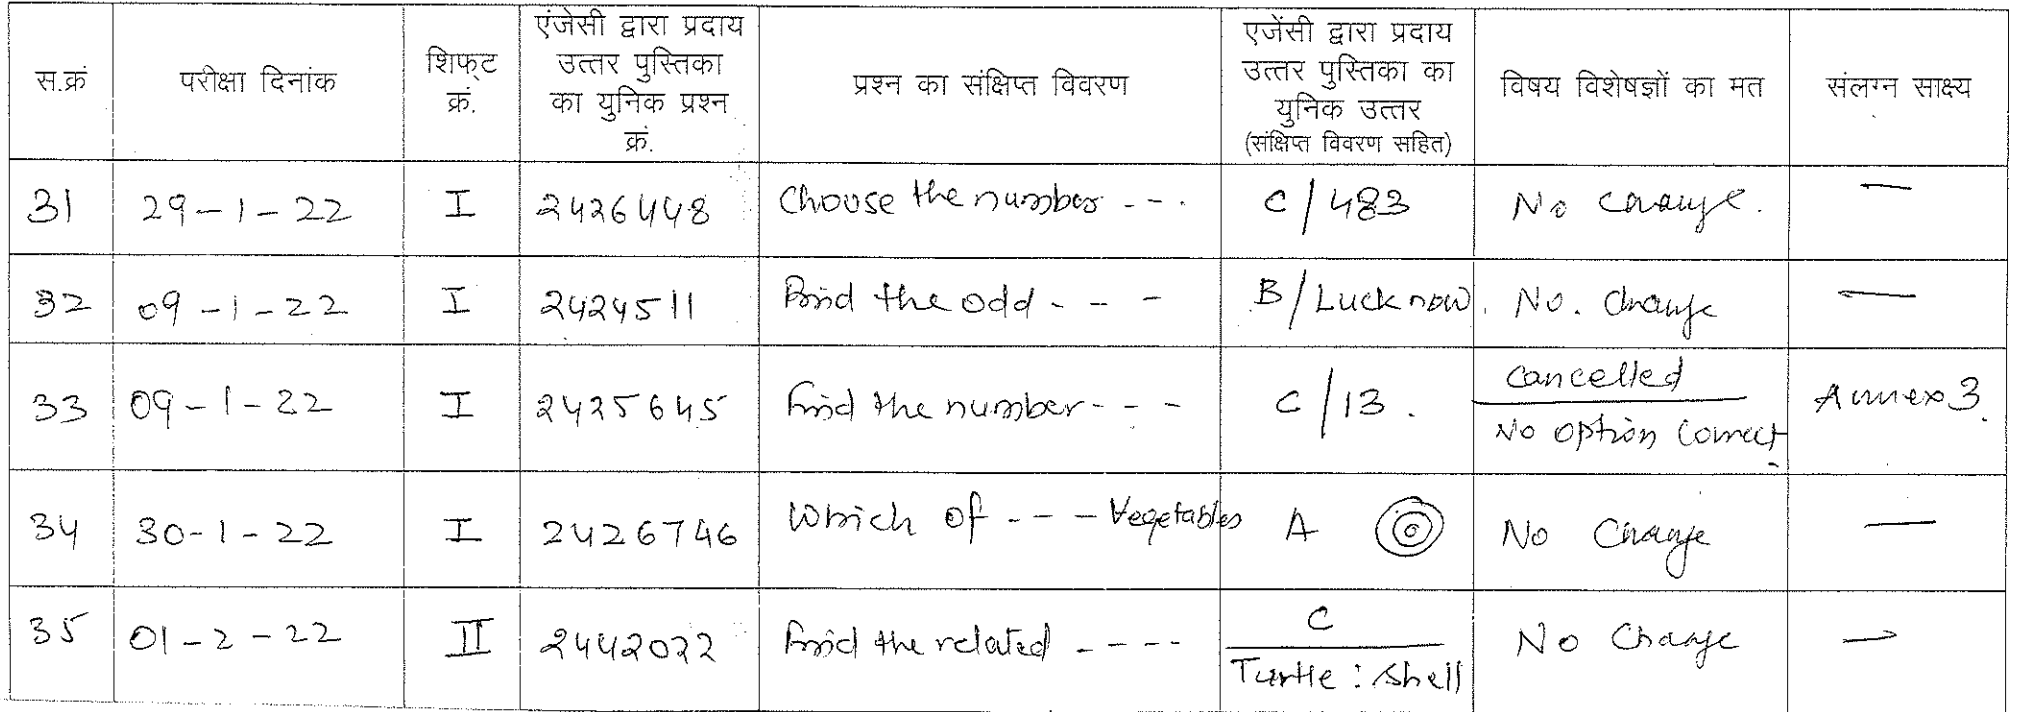 स.क्रं परीक्षा दिनांक शिफ्ट क्रं. एंजेसी द्वारा प्रदाय उत्तर पुस्तिका का युनिक प्रश्न क्रं. प्रश्न का संक्षिप्त विवरण एजेंसी द्वारा प्रदाय उत्तर पुस्तिका का युनिक उत्तर (संक्षिप्त विवरण सहित) विषय विशेषज्ञों का मत संलग्न साक्ष्य
31 29-1-22 I 2426448 Choose the number --. C/483 No change. —
32 09-1-22 I 2424511 Find the odd --- B/Lucknow. No. Change —
33 09-1-22 I 2425645 Find the number--- C/13. Cancelled No option Correct Annex 3.
34 30-1-22 I 2426746 Which of --- Vegetables A No Change —
35 01-2-22 II 2442022 Find the related ---- C Turtle : Shell No Change —